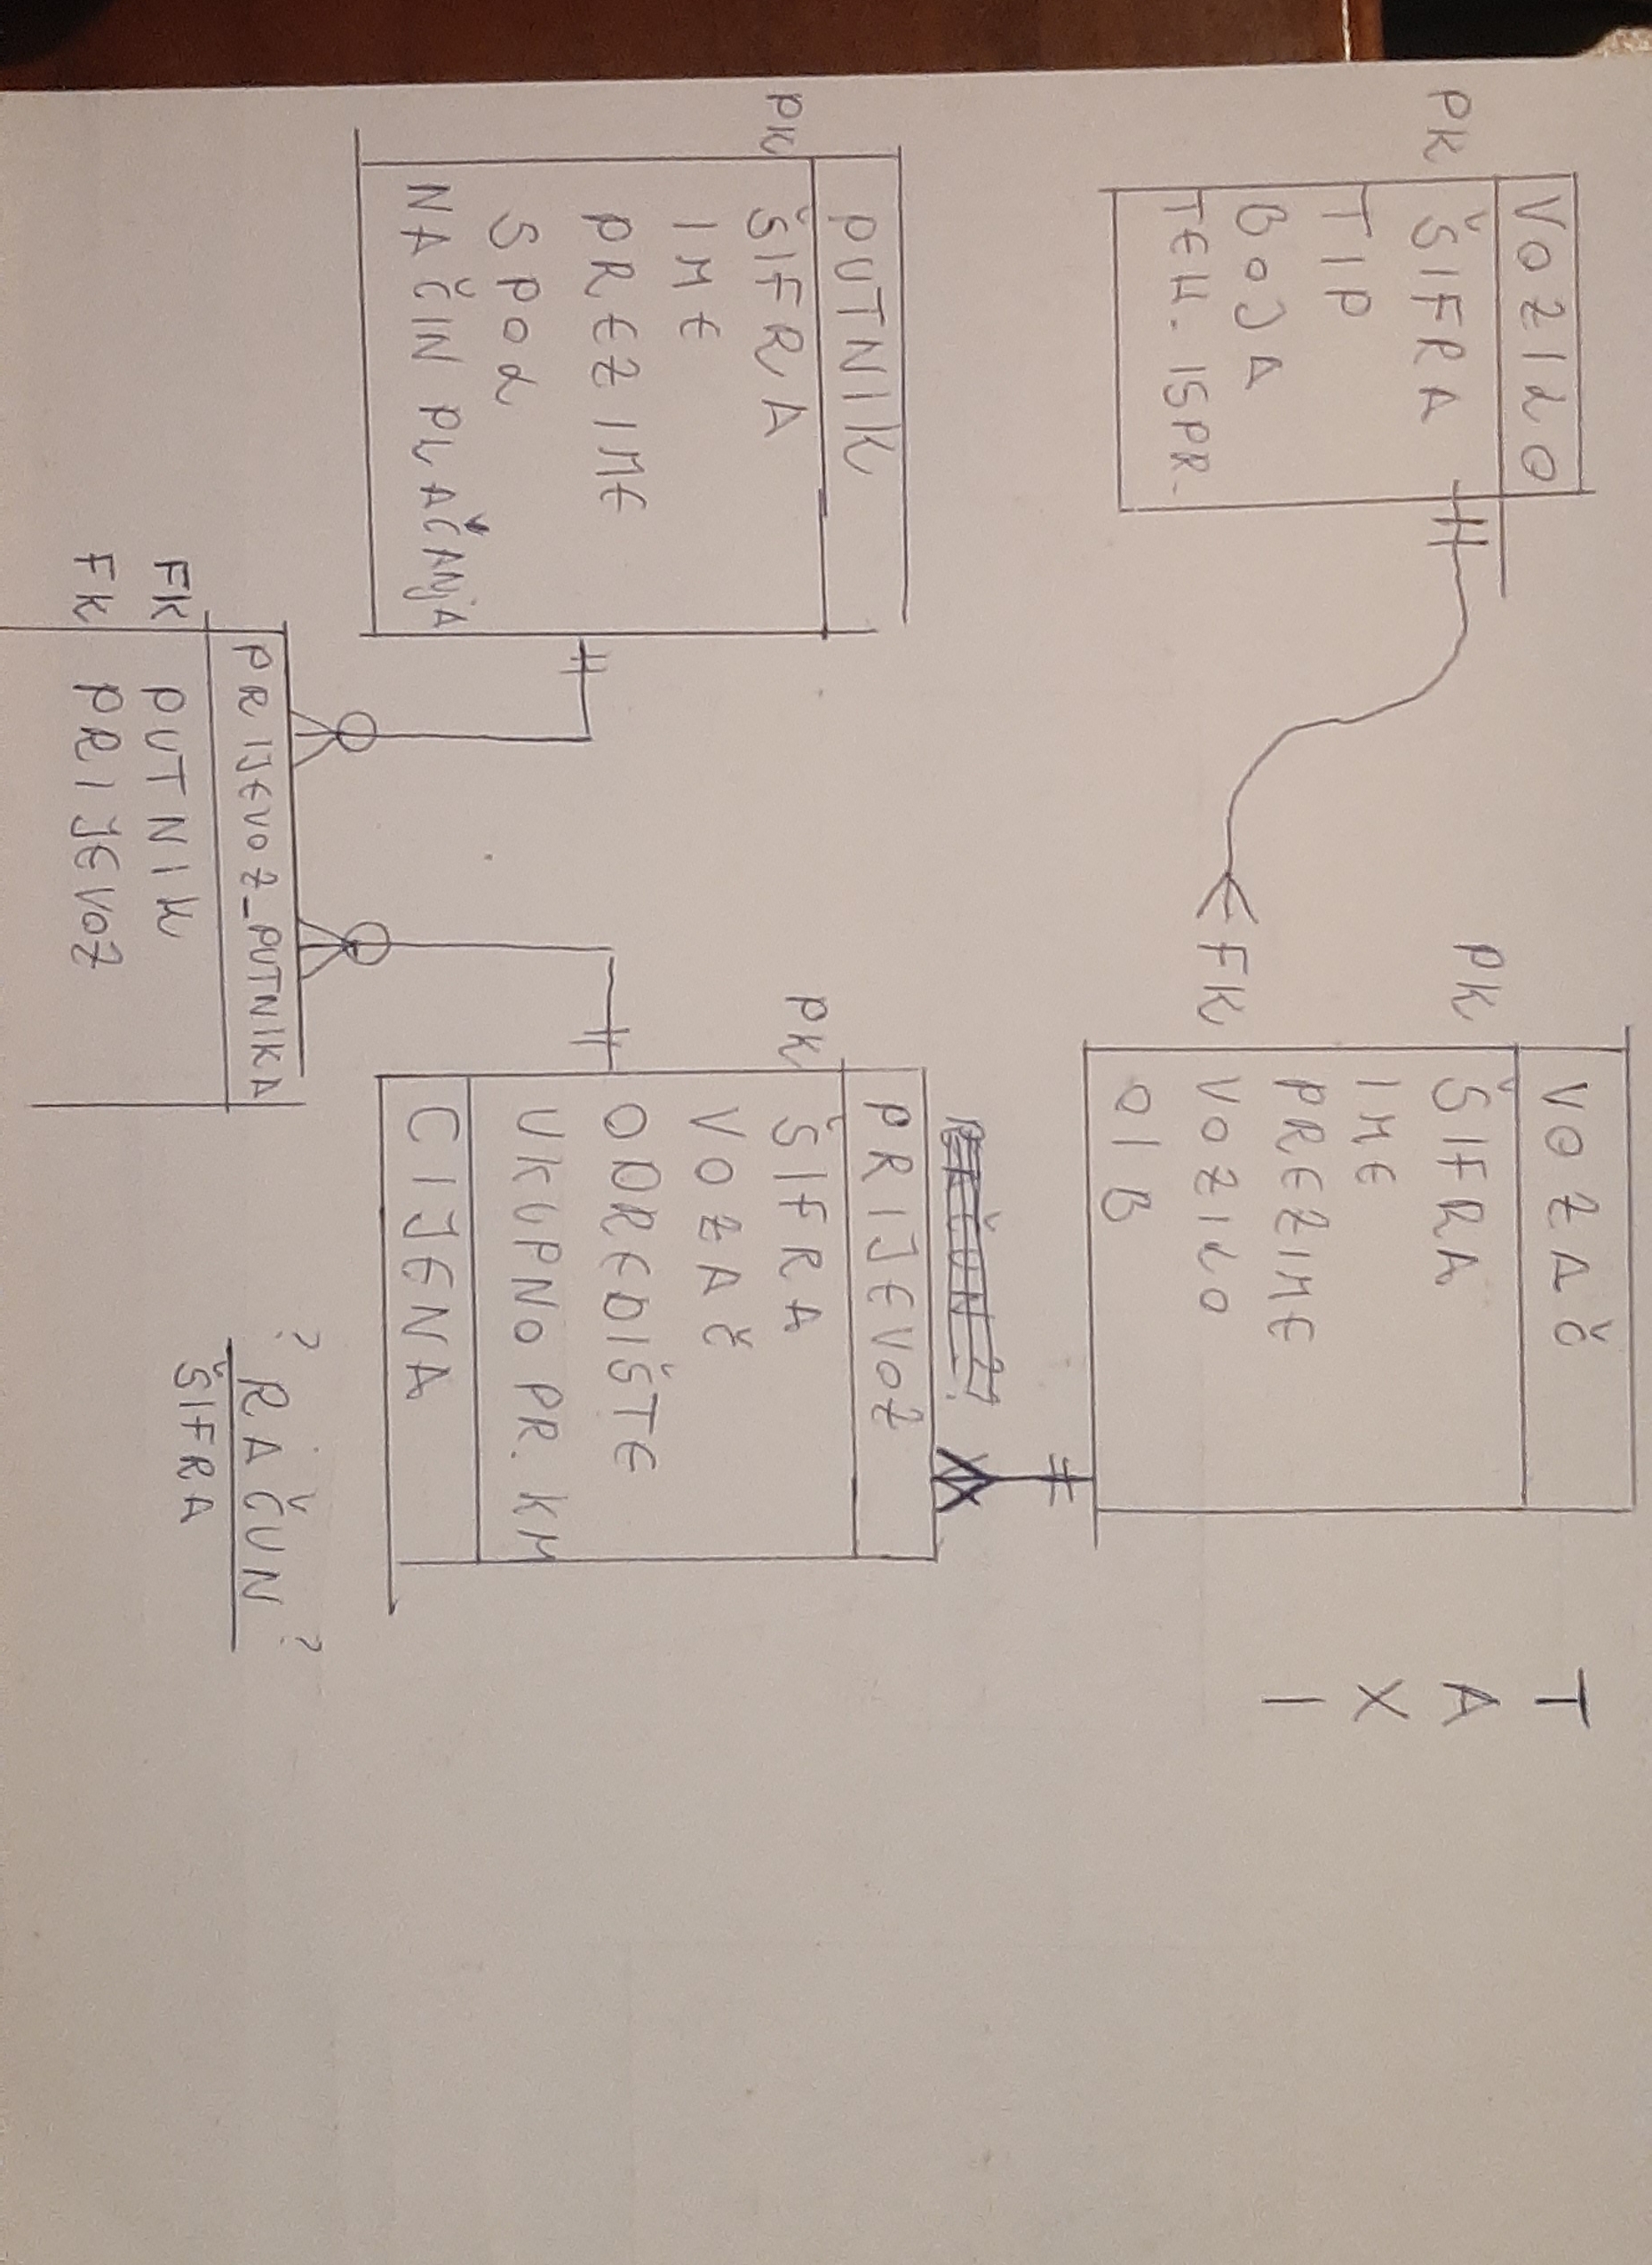 VOZILO
PK ŠIFRA
TIP
BOJA
TEH. ISPR.
VOZAČ
PK ŠIFRA
IME
PREZIME
FK VOZILO
OIB
T
A
X
I
RAČUN ??
PUTNIK
PK ŠIFRA
IME
PREZIME
SPOL
NAČIN PLAČANjA
PRIJEVOZ
PK ŠIFRA
VOZAČ
ODREDIŠTE
UKUPNO PR. KM
CIJENA
PRIJEVOZ_PUTNIKA
FK PUTNIK
FK PRIJEVOZ
? RAČUN ?
ŠIFRA